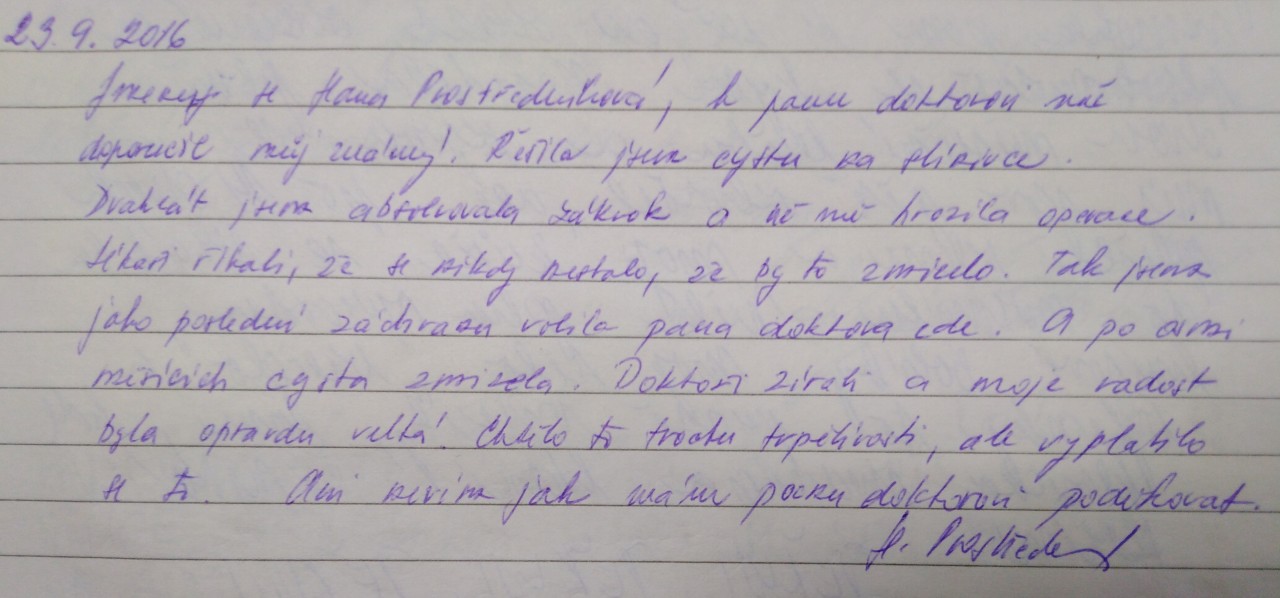 23. 9. 2016
Jmenuji se Hana Prostředníková, k panu doktorovi mě
doporučil můj známý. Řešila jsem cystu na slinivce.
Dvakrát jsem absolvovala zákrok a už mě hrozila operace.
Lékaři říkali, že se nikdy nestalo, že by to zmizelo. Tak jsem
jako poslední záchranu volila pana doktora cde. A po osmi
měsících cysta zmizela. Doktoři zírali a moje radost
byla opravdu velká. Chtělo to trochu trpělivosti, ale vyplatilo
se to. Ani nevím jak mám panu doktorovi poděkovat.
H. Prostřed